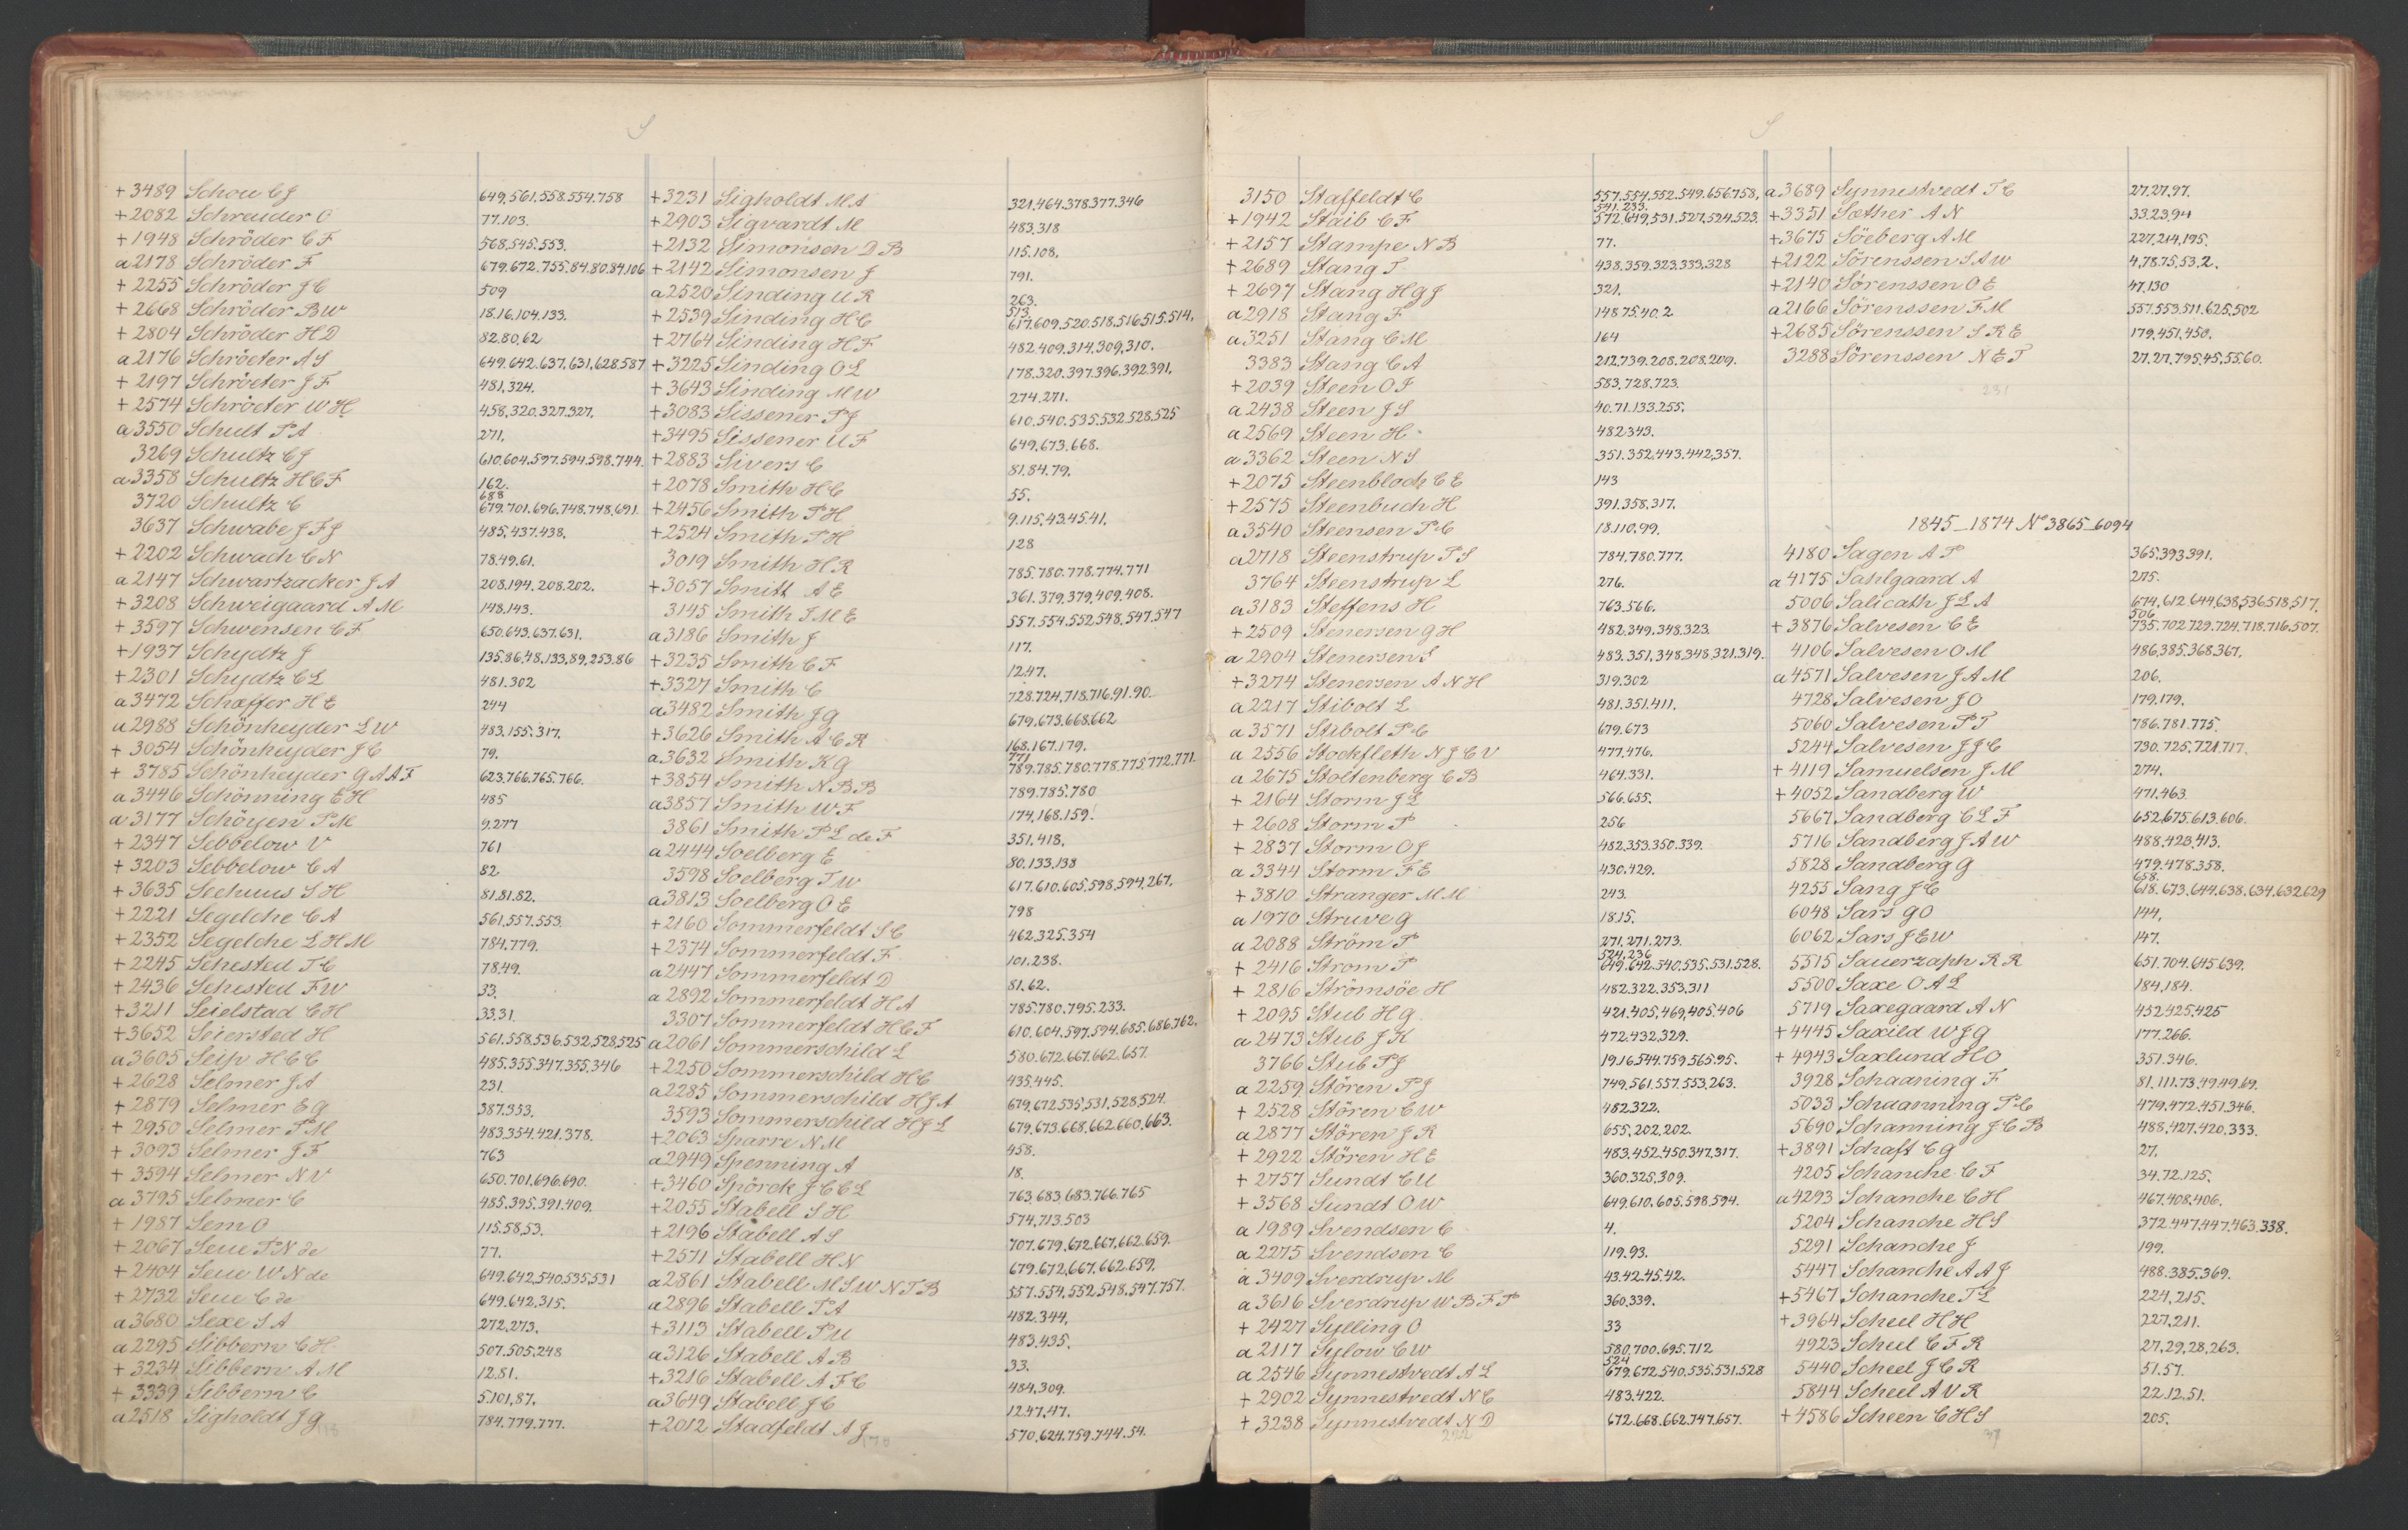 S
+3489 Schou C J 649,561.558.554.758
+2082 Schreuder O 77.103.
+1948 Schröder C F 568.545.553.
a2178 Schröder F 679.672.755.84.80.84.106
+2255 Schröder J C 509
+2668 Schröder B W 18.16.104.133.
+2804 Schröder H D 82.80.62
a2176 Schröeter A S 649.642.637.631.628.587
+2197 Schröeter J F 481.324.
+2574 Schröeter W H 458.320.327.327.
a3550 Schult P A 271.
3269 Schultz C J 610.604.597.594.598.744.
a3358 Schultz H C F 162.
3720 Schultz C 679.701.696.748.748.691. 688
3637 Schwabe J F J 485.437.438.
+2202 Schwach C N 78.49.61.
a2147 Schwartzacker J A 208.194.208.202.
+3208 Schweigaard A M 148.143.
+3597 Schwensen C F 650.643.637.631.
+1937 Schydtz J 135.86.48.133.89.253.86
+2301 Schydtz C L 481.302
a3472 Schæffer H E 244
a2988 Schönheyder L W 483.155.317.
+3054 Schönheyder J C 79.
+3785 Schönheyder G A A F 623.766.765.766.
a3446 Schönning E H 485
a3177 Schöyen P M 9.277
+2347 Sebbelow V 761
+3203 Sebbelow C A 82
+3635 Seehuus S H 81.81.82.
+2221 Segelche C A 561.557.553
+2352 Segelche L H M 784.779.
+2245 Sehested T C 78.49.
+2436 Sehested F W 33.
+3211 Seielstad C H 33.31.
+3652 Seiersted H 561.558.536.532.528.525
a3605 Seip H C C 485.355.347.355.346
+2628 Selmer J A 231.
+2879 Selmer E G 387.353.
+2950 Selmer P M 483.354.421.378.
+3093 Selmer J F 763
+3594 Selmer N V 650.701.696.690.
a3795 Selmer C 485.395.391.409.
+1987 Sem O 115.58.53.
+2067 Seue P N de 77.
+2404 Seue W N de 649.642.540.535.531
+2732 Seue C de 649.642.315.
a3680 Sexe S A 272.273.
a2295 Sibbern C H 507.505.248
+3234 Sibbern A M 12.81.
+3339 Sibbern C 5.101.87.
a2518 Sigholdt J G 784.779.777.
+3231 Sigholdt M S 321.464.378.377.346
+2903 Sigvardt M 483.318
+2132 Simonsen D B 115.108.
+2142 Simonsen J 791.
a2520 Sinding U R 263.
+2539 Sinding H C 617.609.520.518.516.515.514. 513
+2764 Sinding H F 482.409.314.309.310.
+3225 Sinding O L 178.320.397.396.392.391.
+3643 Sinding M W 274.271.
+3083 Sissener P J 610.540.535.532.528.525
+3495 Sissener U F 649.673.668.
+2883 Sivers C 81.84.79.
+2078 Smith H C 55.
+2456 Smith P H 9.115.43.45.41.
+2524 Smith P H 128
3019 Smith H R 785.780.778.774.771
+3057 Smitt A E 361.379.379.409.408.
3145 Smith S M E 557.554.552.548.547.547
a3186 Smith J 117.
+3235 Smith C F 12.47.
+3327 Smith C 728.724.718.716.91.90.
a3482 Smith J G 679.673.668.662
+3626 Smith A C R 168.167.179.
a3632 Smith K G 789.785.780.778.775.772.771. 771
+3854 Smith N B B 789.785.780
a3857 Smith W F 174.168.159.
3861 Smith P L de F 351.418.
a2444 Soelberg E 80.133.138
3598 Soelberg T W 617.610.605.598.594.267.
a3813 Soelberg O E 798
+2160 Sommerfeldt S C 462.325.354
+2374 Sommerfeldt F 101.238.
a2447 Sommerfeldt D 81.62.
a2892 Sommerfeldt H A 785.780.795.233.
3307 Sommerfeldt H C F 610.604.597.594.685.686.762.
a2061 Sommerschild L 580.672.667.662.657.
+2250 Sommerschild H C 435.445.
a2285 Sommerschild H J A 679.672.535.531.528.524.
3593 Sommerschild H J L 679.673.668.662.660.663.
+2063 Sparre N M 458.
a2949 Spenning A 18.
+3460 Spörck J C C L 763.683.683.766.765
+2055 Stabell S H 574.713.503
+2196 Stabell A S 707.679.672.667.662.659.
+2571 Stabell H N 679.672.667.662.659.
a2861 Stabell M S W N T B 557.554.552.548.547.757.
a2896 Stabell P A 482.344.
+3113 Stabell P U 483.435.
a3126 Stabell A B 33.
+3216 Stabell A F C 484.309.
a3649 Stabell J C 12.47.47.
+2012 Stadfeldt A J 570.624.759.744.54.
S
3150 Staffeldt C 557.554.552.549.656.758. 541.233.
+1942 Staib C F 572.649.531.527.524.523.
+2157 Stampe N B 77.
+2689 Stang T 438.359.323.333.328
+2697 Stang H G J 321.
a2918 Stang F 148.75.40.2
a3251 Stang C M 164
3383 Stang C A 212.739.208.208.209.
+2039 Steen O J 583.728.723.
a2438 Steen J S 40.71.133.255.
a2569 Steen H 482.343.
a3362 Steen N S 351.352.443.442.357.
+2075 Steenbloch C E 143
+2575 Steenbuch H 391.358.317.
a3540 Steensen P C 18.110.99.
a2718 Steenstrup P S 784.780.777.
3764 Steenstrup L 276.
a3183 Steffens H 763.566.
+2509 Stenersen G H 482.349.348.323.
a2904 Stenersen S 483.351.348.348.321.319.
+3274 Stenersen A N H 319.302
a2217 Stibolt L 481.351.411.
a3571 Stibolt P C 679.673
a2556 Stockfleth N J C V 477.476.
a2675 Stoltenberg C B 464.331.
+2164 Storm J L 566.655.
+2608 Storm P 256
+2837 Storm O J 482.353.350.339.
a3344 Storm F E 430.429.
+3810 Stranger M M 243.
a1970 Struve G 18.15.
a2088 Ström P 271.271.273.
+2416 Strom P 649.642.540.535.531.528. 524.236
+2816 Strömsöe H 482.322.353.311
+2095 Stub H G 421.405.469.405.406
a2473 Stub J K 472.432.329.
3766 Stub P J 19.16.544.759.565.95.
a2259 Stören P J 749.561.557.553.263.
+2528 Stören C W 482.322.
a2877 Stören J R 655.202.202.
+2922 Stören H E 483.452.450.347.317.
+2757 Sundt C U 360.325.309.
+3568 Sundt O W 649.610.605.598.594.
a1989 Svendsen C 4.
a2275 Svendsen C 119.93.
a3409 Sverdrup M 43.42.45.42.
a3616 Sverdrup W B F P 360.339.
+2427 Sylling O 33
a2117 Sylow C W 580.700.695.712
a2546 Synnestvedt A L 679.672.540.535.531.528 524
+2902 Synnestvedt N C 483.422.
+3238 Synnestvedt N D 672.668.662.747.657.
a3689 Synnestvedt T C 27.27.97.
+3351 Sæther A N 33.23.94
+3675 Söeberg A M 227.214.195.
+2122 Sörenssen S A W 4.78.75.53.2.
+2140 Sörenssen O E 47.130
a2166 Sörenssen F M 557.553.511.625.502
+2685 Sörenssen S R E 179.451.450.
3288 Sörenssen N E T 27.27.795.45.55.60.
231
1845_1874 No 3865_6094
4180 Sagen A P 365.393.391.
a4175 Sahlgaard A 275.
5006 Salicath J L A 674.612.644.638.536.518.517. 506
+3876 Salvesen C E 735.702.729.724.718.716.507.
4106 Salvesen O M 486.385.368.367.
a4571 Salvesen J A M 206.
4728 Salvesen J O 179.179.
5060 Salvesen P T 786.781.775.
5244 Salvesen J J C 730.725.721.717.
+4119 Samuelsen J M 274.
+4052 Sandberg W 471.463
5667 Sandberg C L F 652.675.613.606.
5716 Sandberg J A W 488.423.413.
5828 Sandberg G 479.478.358.
4255 Sang J C 618.673.644.638.634.632.629 658.
6048 Sars G O 144.
6062 Sars J E W 147.
5515 Sauerzaph R R 651.704.645.639.
5500 Saxe O A L 184.184.
5719 Saxegaard A N 452.425.425
+4445 Saxild W J G 177.266.
+4943 Saxlund H O 351.346.
3928 Schaaning F 81.111.73.49.49.69.
5033 Schaanning P C 479.472.451.346.
5690 Schanning J C B 488.427.420.333.
+3891 Schaft C G 27.
4205 Schanche C F 34.72.125.
a4293 Schanche C H 467.408.406.
5204 Schanche H S 372.447.447.463.338.
5291 Schanche J 199.
5447 Schanche A A J 488.385.369.
+5467 Schanche T L 224.215.
+3964 Scheel H H 227.211.
4923 Scheel C F R 27.29.28.263.
5440 Scheel J C R 51.57.
5844 Scheel A V R 22.12.51.
+4586 Scheen C H S 205.